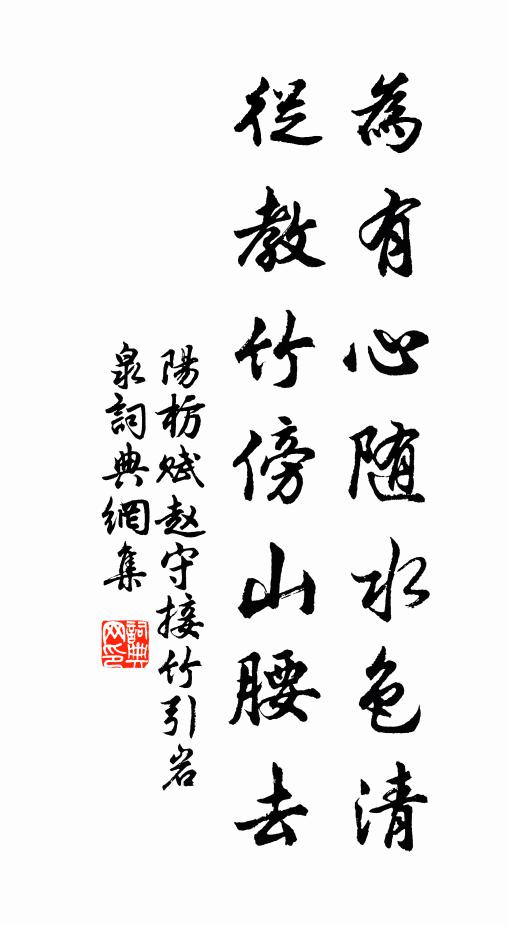 為有心随水色清
從教竹傍山腰去
陽枋賦赵守接竹引岩
泉詞典網集
詞典
网印